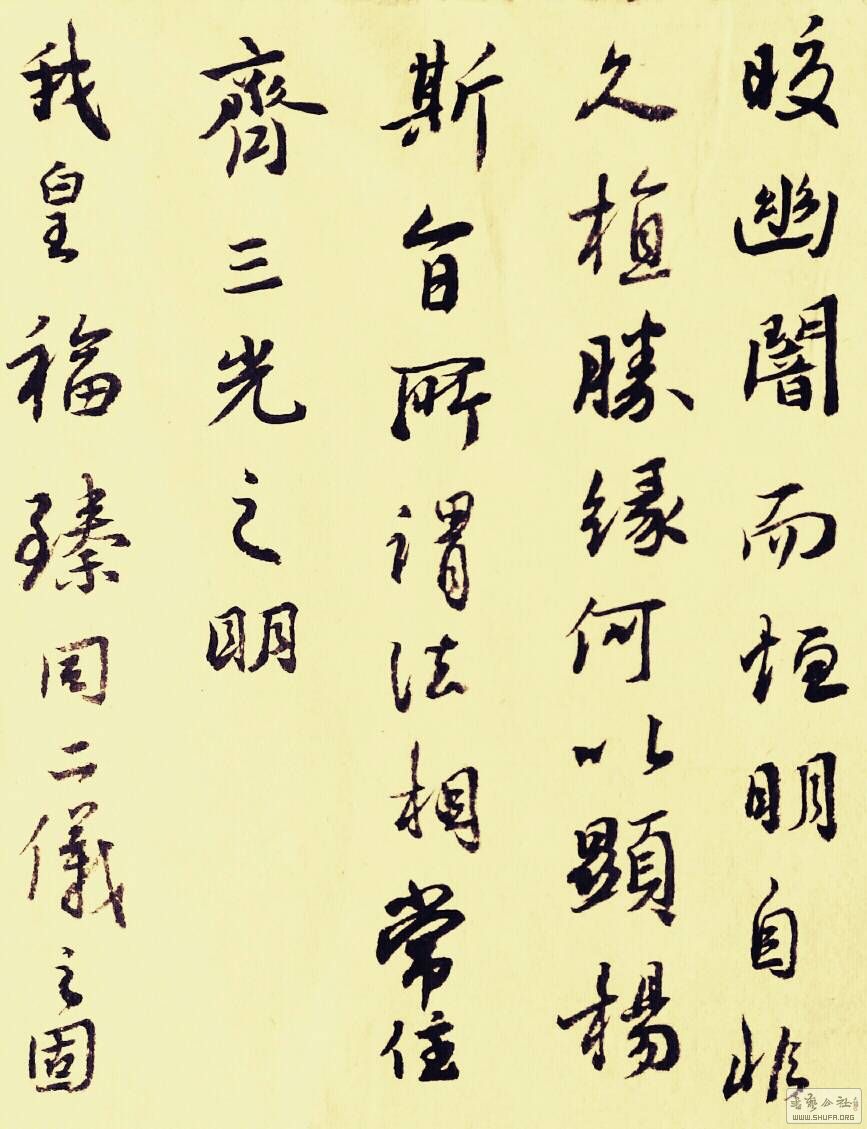 晈幽闇而恒明自非
久植勝緣何以顯楊
斯旨所謂法相常住
齊三光之明
我皇福臻同二儀之固
書藝公社
WWW.SHUFA.ORG